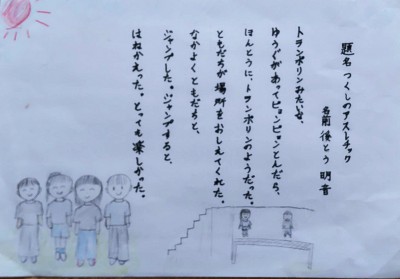 題名 つくしのアスレチック
名前 後とう 明音
トランポリンみたいな、
ゆうぐがあってピョンピョンとんだら、
ほんとうに、トランポリンのようだった。
ともだちが場所をおしえてくれた。
なかよくともだちと、
ジャンプした。ジャンプすると、
はねかえった。とっても楽しかった。